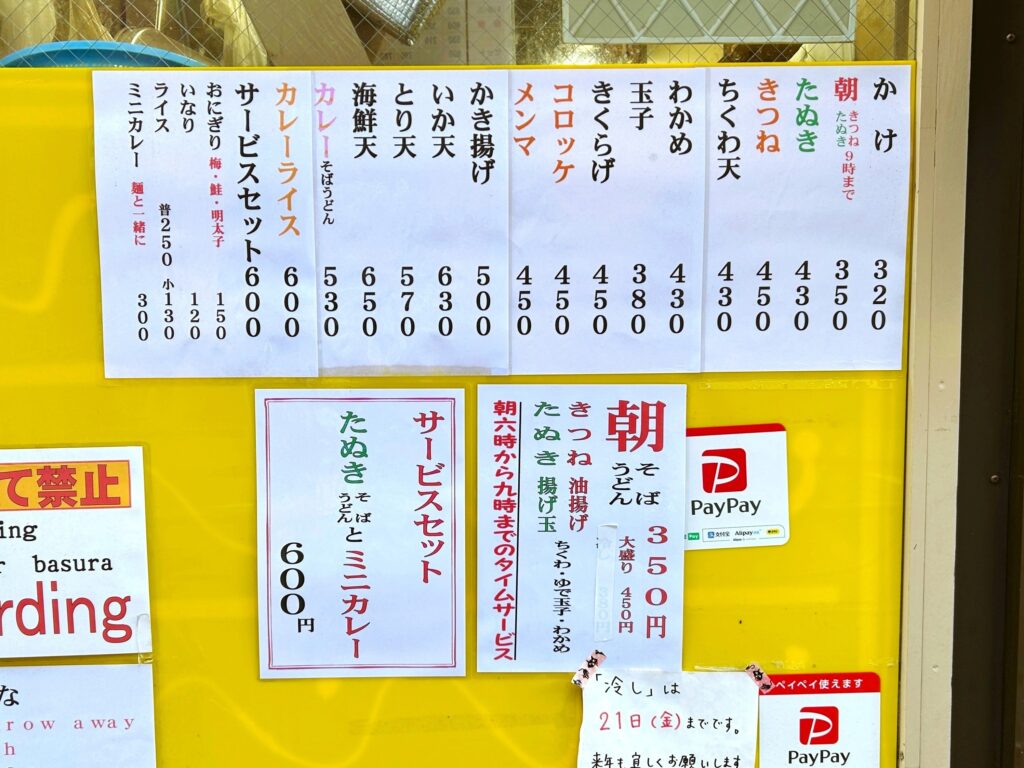 かけ 320
朝 きつね たぬき 9時まで 350
たぬき 430
きつね 450
ちくわ天 430
わかめ 430
玉子 380
きくらげ 450
コロッケ 450
メンマ 450
かき揚げ 500
いか天 630
とり天 570
海鮮天 650
カレーそばうどん 530
カレーライス 600
サービスセット 600
おにぎり 梅・鮭・明太子 150
いなり 120
ライス 普250 小130
ミニカレー 麺と一緒に 300
サービスセット
たぬきそばうどんとミニカレー
600円
朝そばうどん 350円
大盛り 450円
きつね 油揚げ
たぬき 揚げ玉
ちくわ・ゆで玉子・わかめ
朝六時から九時までのタイムサービス
PayPay
Pay 支付宝 Alipay
て禁止
ing
r basura
rding
な
row away
h
「冷し」は
21日(金)までです。
来年も宜しくお願いします
ペイペイ使えます
PayPay